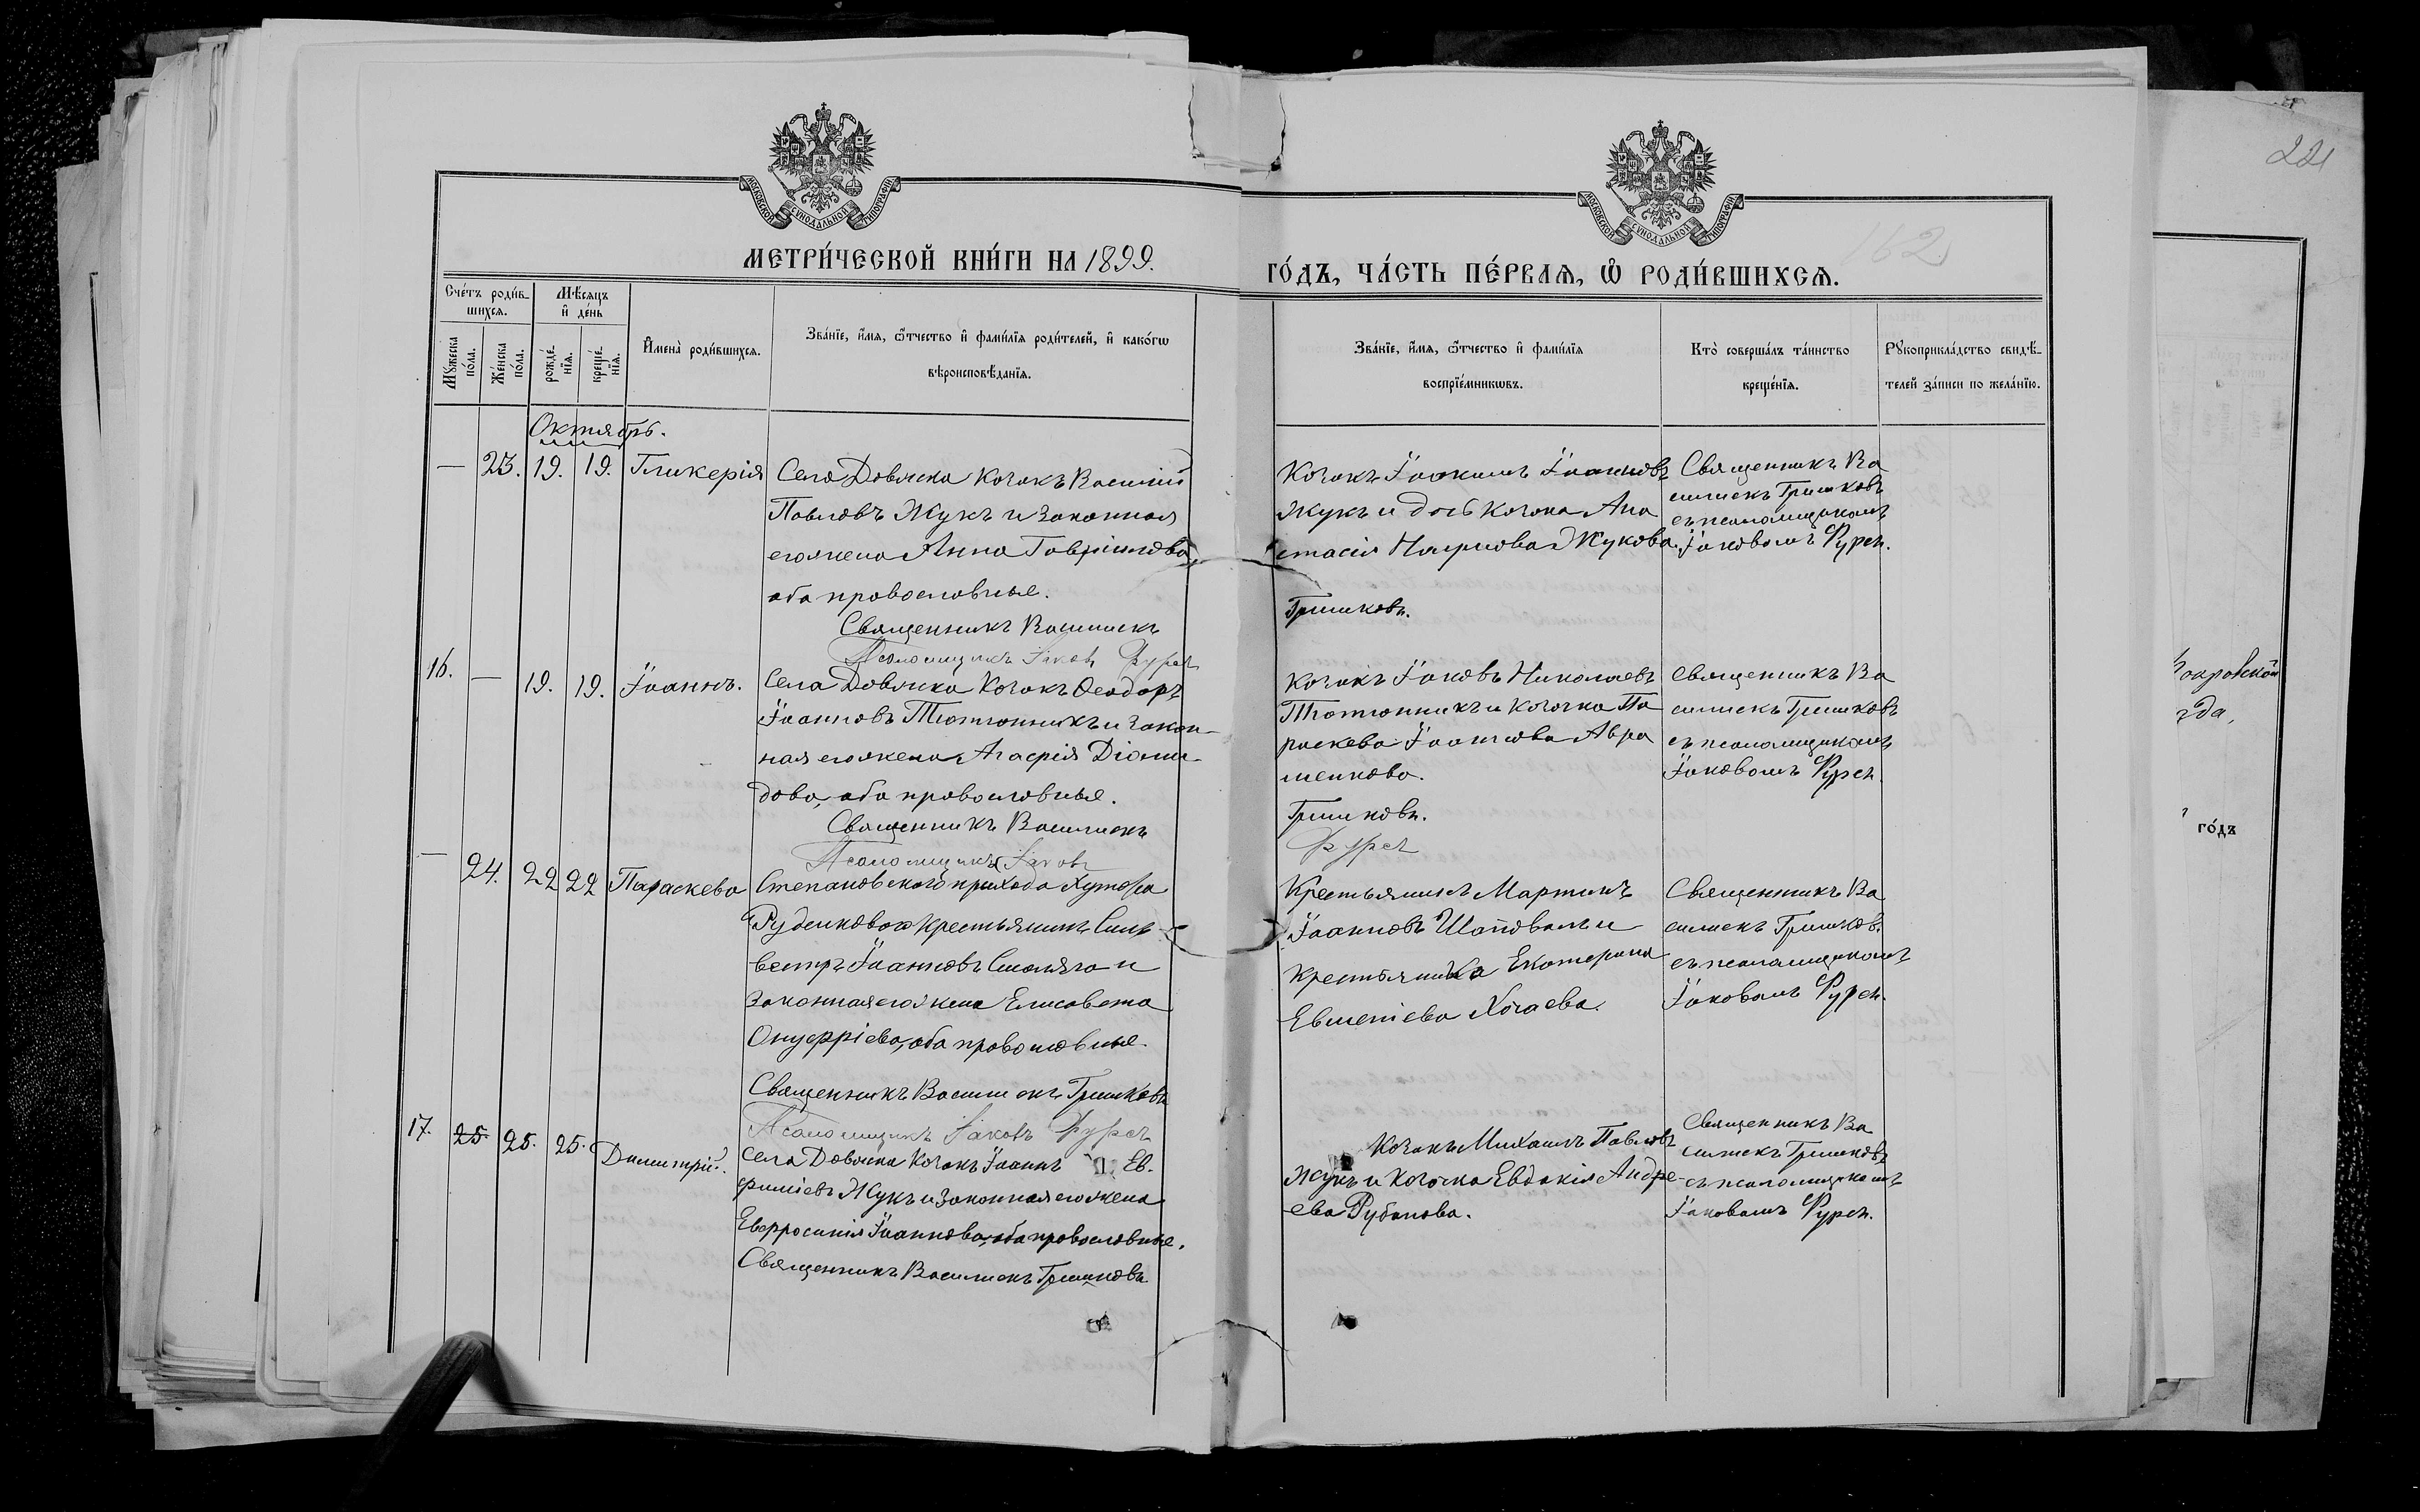 221
МОСКОВСКОЙ СУНОДАЛЬНОЙ ТИПОГРАФІИ
МОСКОВСКОЙ СУНОДАЛЬНОЙ ТИПОГРАФІИ
МЕТРИ́ЧЕСКОЙ КНИ́ГИ НА 1899.
ГО́ДЪ, ЧА́СТЬ ПЕ́РВАЯ, Ѡ҆ РОДИ́ВШИХСЯ.
162
Сче́тъ роди́в-
шихся.
Мѣ́сяцъ
и҆ де́нь
Мꙋ́жеска
по́ла.
Же́нска
по́ла.
рожде́-
нїя.
креще́-
нїя.
И҆мена̀ роди́вшихся.
Зва́нїе, и҆́мя, ѻ҆́тчество и҆ фами́лїя роди́телей, и҆ како́гѡ
вѣроисповѣ́данїя.
Зва́нїе, и҆́мя, ѻ҆́тчество и҆ фами́лїя
воспрїе́мникѡвъ.
Кто̀ соверша́лъ та́инство
креще́нїя.
Рꙋкоприкла́дство свидѣ́-
телей за́писи по жела́нїю.
Октябрь.
— 23. 19. 19. Гликерія
Села Довжика Козакъ Василій
Павловъ Жукъ и законная
его жена Анна Гавріилова,
оба православные.
Священникъ Василискъ
Псаломщикъ Іаковъ Фурса
Козакъ Іоакимъ Іоанновъ
Жукъ и дочь козака Ана
стасія Наумова Жукова.
Гришковъ.
Священникъ Ва
силискъ Гришковъ
съ псаломщикомъ
Іаковомъ Фурсъ.
16. — 19. 19. Іоаннъ.
Села Довжика Козакъ Ѳеодоръ
Іоанновъ Тютюнникъ и закон-
ная его жена Агафія Діоми-
дова, оба православные.
Священникъ Василискъ
Псаломщикъ Іаковъ
Козакъ Іаковъ Николаевъ
Тютюнникъ и козачка Па
раскева Іоаннова Авра
менкова.
Гришковъ.
Фурса
Священникъ Ва
силискъ Гришковъ
съ псаломщикомъ
Іаковомъ Фурсъ.
— 24. 22 22 Параскева
Степановскаго прихода хутора
Руденковаго крестьянинъ Силь-
вестръ Іоанновъ Смоляга и
законная его жена Елисавета
Онуфріева, оба православные.
Священникъ Василискъ Гришковъ
Псаломщикъ Іаковъ Фурса
Крестьянинъ Мартинъ
Іоанновъ Шаповалъ и
крестьянка Екатерина
Евменіева
Священникъ Ва
силискъ Гришковъ
съ псаломщикомъ
Іаковомъ Фурсъ.
17. 25. 25. 25. Димитрій.
Села Довжика Козакъ Іоаннъ Ев-
фиміевъ Жукъ и законная его жена
Евфросинія Іоаннова, оба православные.
Священникъ Василискъ Гришковъ
Козакъ Михаилъ Павловъ
Жукъ и козачка Евдокія Андре-
ева Рубанова.
Священникъ Ва
силискъ Гришковъ
съ псаломщикомъ
Іаковомъ Фурсъ.
го́дъ